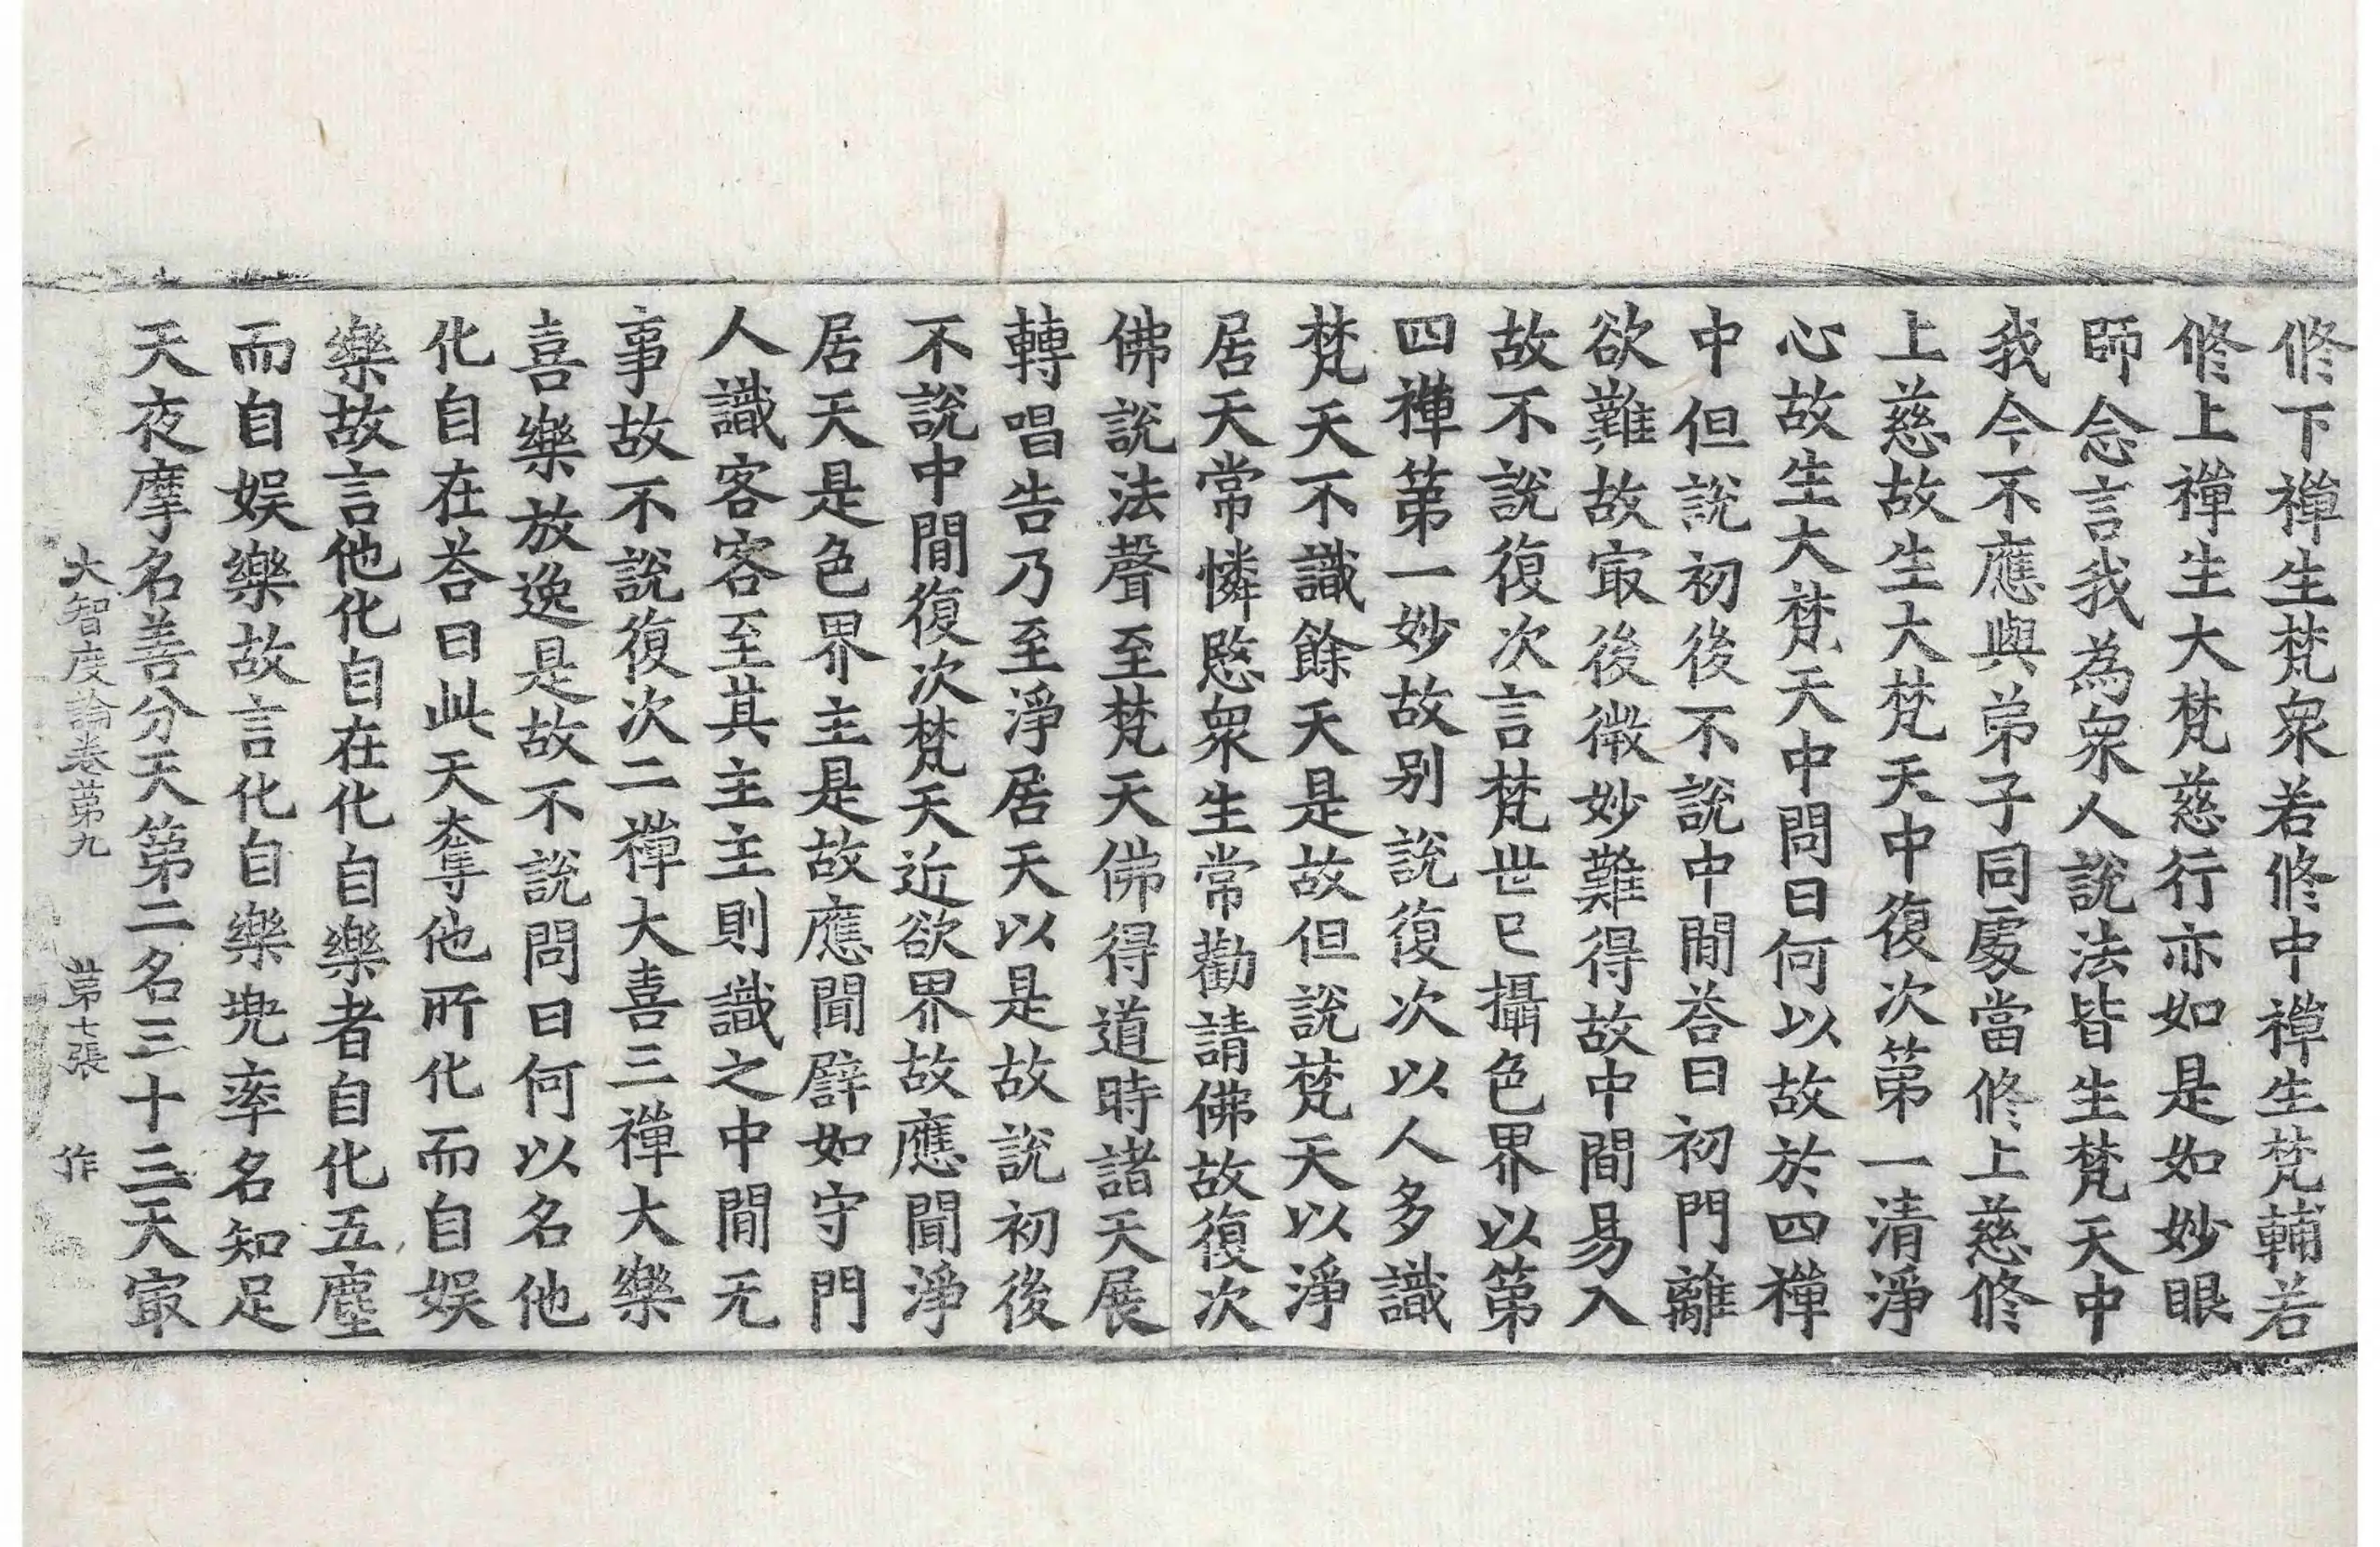 修下禪生梵衆若修中禪生梵輔若
修上禪生大梵慈行亦如是如妙眼
師念言我為衆人說法皆生梵天中
我今不應與弟子同處當修上慈修
上慈故生大梵天中復次第一清淨
心故生大梵天中問曰何以故於四禪
中但說初後不說中閒荅曰初門離
欲難故㝡後微妙難得故中間易入
故不說復次言梵世已攝色界以第
四禪第一妙故別說復次以人多識
梵天不識餘天是故但說梵天以淨
居天常憐愍衆生常勸請佛故復次
佛說法聲至梵天佛得道時諸天展
轉唱告乃至淨居天以是故說初後
不說中閒復次梵天近欲界故應聞淨
居天是色界主是故應聞譬如守門
人識客客至其主主則識之中閒无
事故不說復次二禪大喜三禪大樂
喜樂放逸是故不說問曰何以名他
化自在荅曰此天奪他所化而自娛
樂故言他化自在化自樂者自化五塵
而自娛樂故言化自樂兜率名知足
天夜摩名善分天第二名三十三天㝡
大智度論卷第九 第七張 作